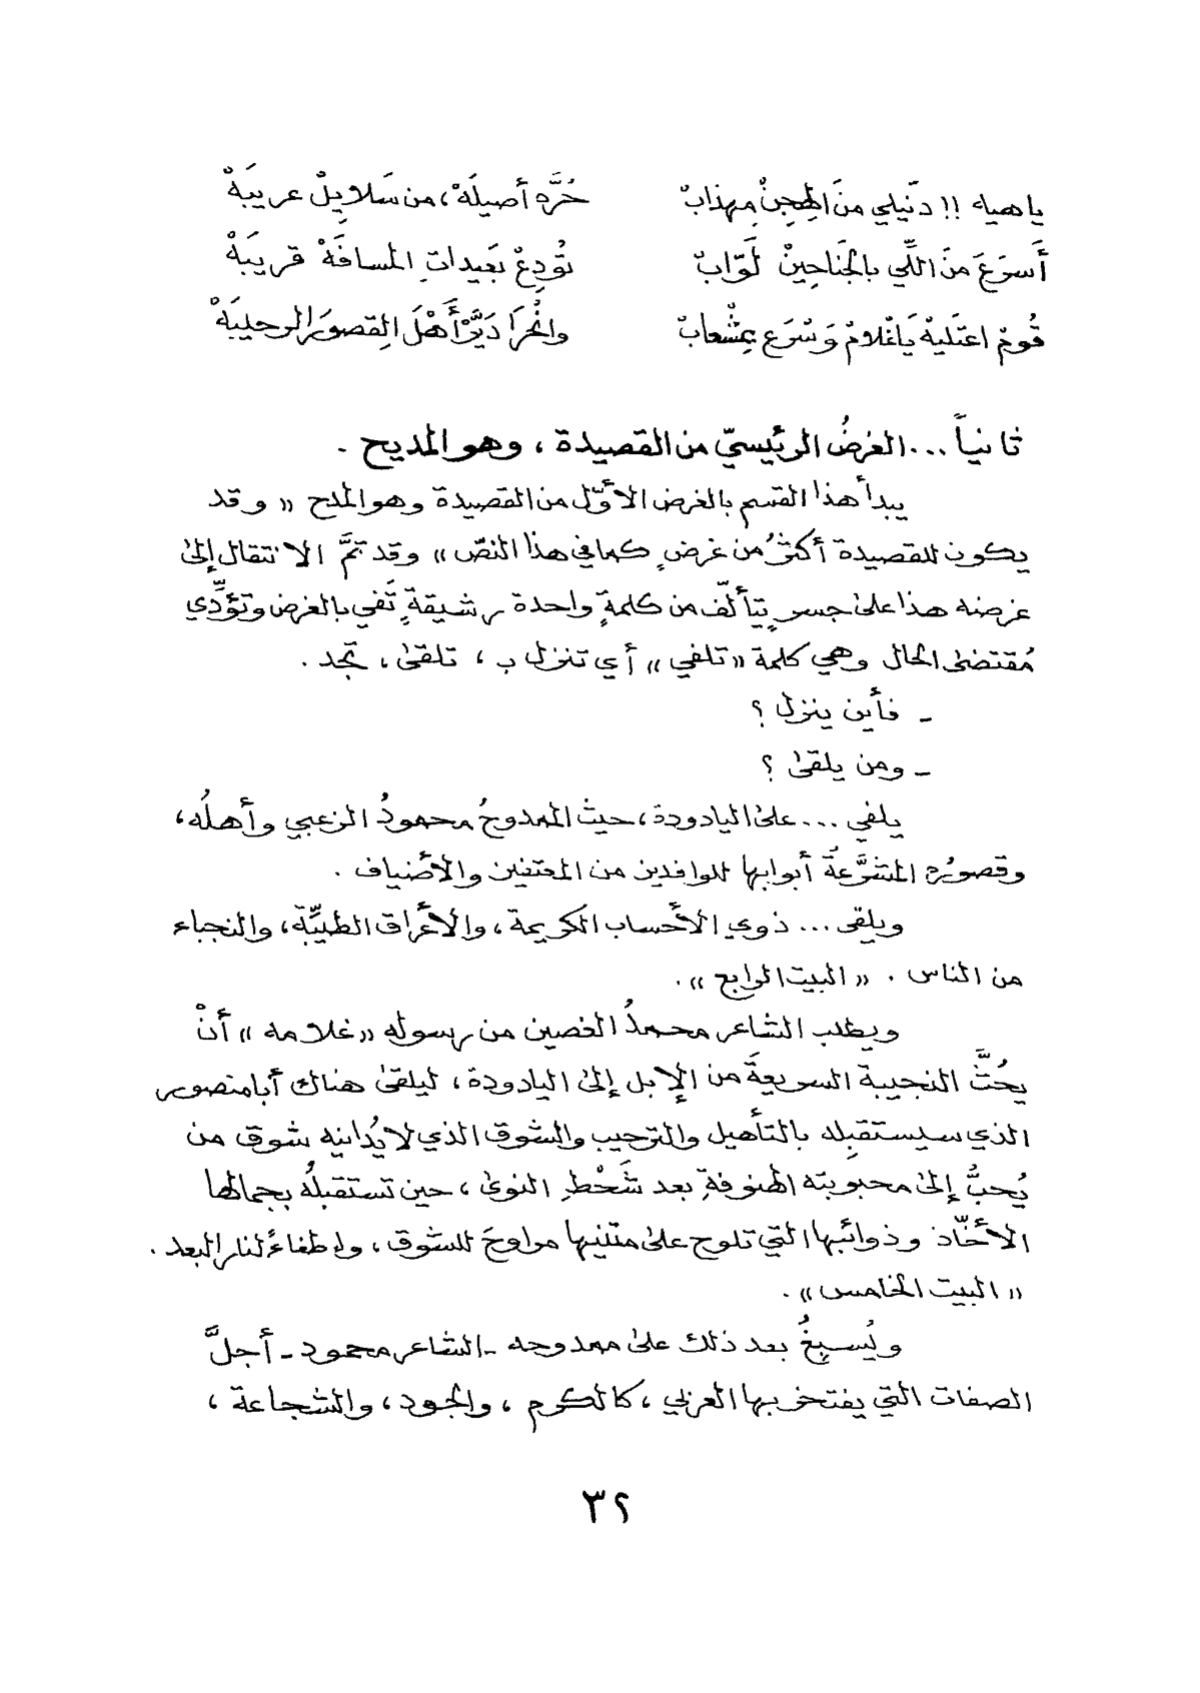 ياهيه !! دَنّيلي منَ الهِجِنْ مِهذابْ    حُرَّه أصيلَهْ، من سَلايِلْ عريبَهْ
أَسرَعَ منَ اللّي بالجنَاحِينْ لَوّابْ    تُودِعْ بَعيداتِ المسافَهْ قريبَهْ
قُومْ اعتَليهْ يَاغْلامْ وَسْرَع بِمْشعابْ    وانْحَرَا دَيَّرْ أَهْلَ القِصورَ الرحليبَهْ
ثانياً ... الغرضُ الرئيسيّ من القصيدة ، وهو المديح .
يبدأ هذا القسم بالغرض الأوّل من القصيدة وهو المدح « وقد
يكون للقصيدة أكثرُ من غرضٍ كما في هذا النصّ » وقد تمَّ الانتقال إلى
غرضه هذا على جسرٍ يتألّف من كلمةٍ واحدة رشيقةٍ تَفي بالغرض وتؤدِّي
مُقتضى الحال وهي كلمة « تلفي » أي تنزل ب ، تلقى ، تجد .
ـ فأين ينزل ؟
ـ ومن يلقى ؟
يلفي ... على اليادودة ، حيث الممدوحُ محمودُ الزعبي وأهلُه ،
وقصورُه المشرَّعةُ أبوابها للوافدين من المعتفين والأضياف .
ويلقى ... ذوي الأحساب الكريمة ، والأعراق الطيِّبة ، والنجباء
من الناس . « البيت الرابع » .
ويطلب الشاعر محمدُ الغصين من رسوله « غلامه » أنْ
يحُثَّ النجيبة السريعةَ من الإبل إلى اليادودة ، ليلقى هناك أبامنصور
الذي سيستقبِله بالتأهيل والترحيب والشوق الذي لا يُدانيه شوق من
يُحبُّ إلى محبوبته الهنوفةِ بعد شَحْطِ النوى ، حين تستقبلُه بجمالها
الأخّاذ وذوائبها التي تلوح على متنيها مراوحَ للشوق ، وإطفاءً لنار البعد .
« البيت الخامس » .
ويُسبِغُ بعد ذلك على ممدوحه ـ الشاعر محمود ـ أجلَّ
الصفات التي يفتخر بها العربي ، كالكرم ، والجود ، والشجاعة ،
٣٢